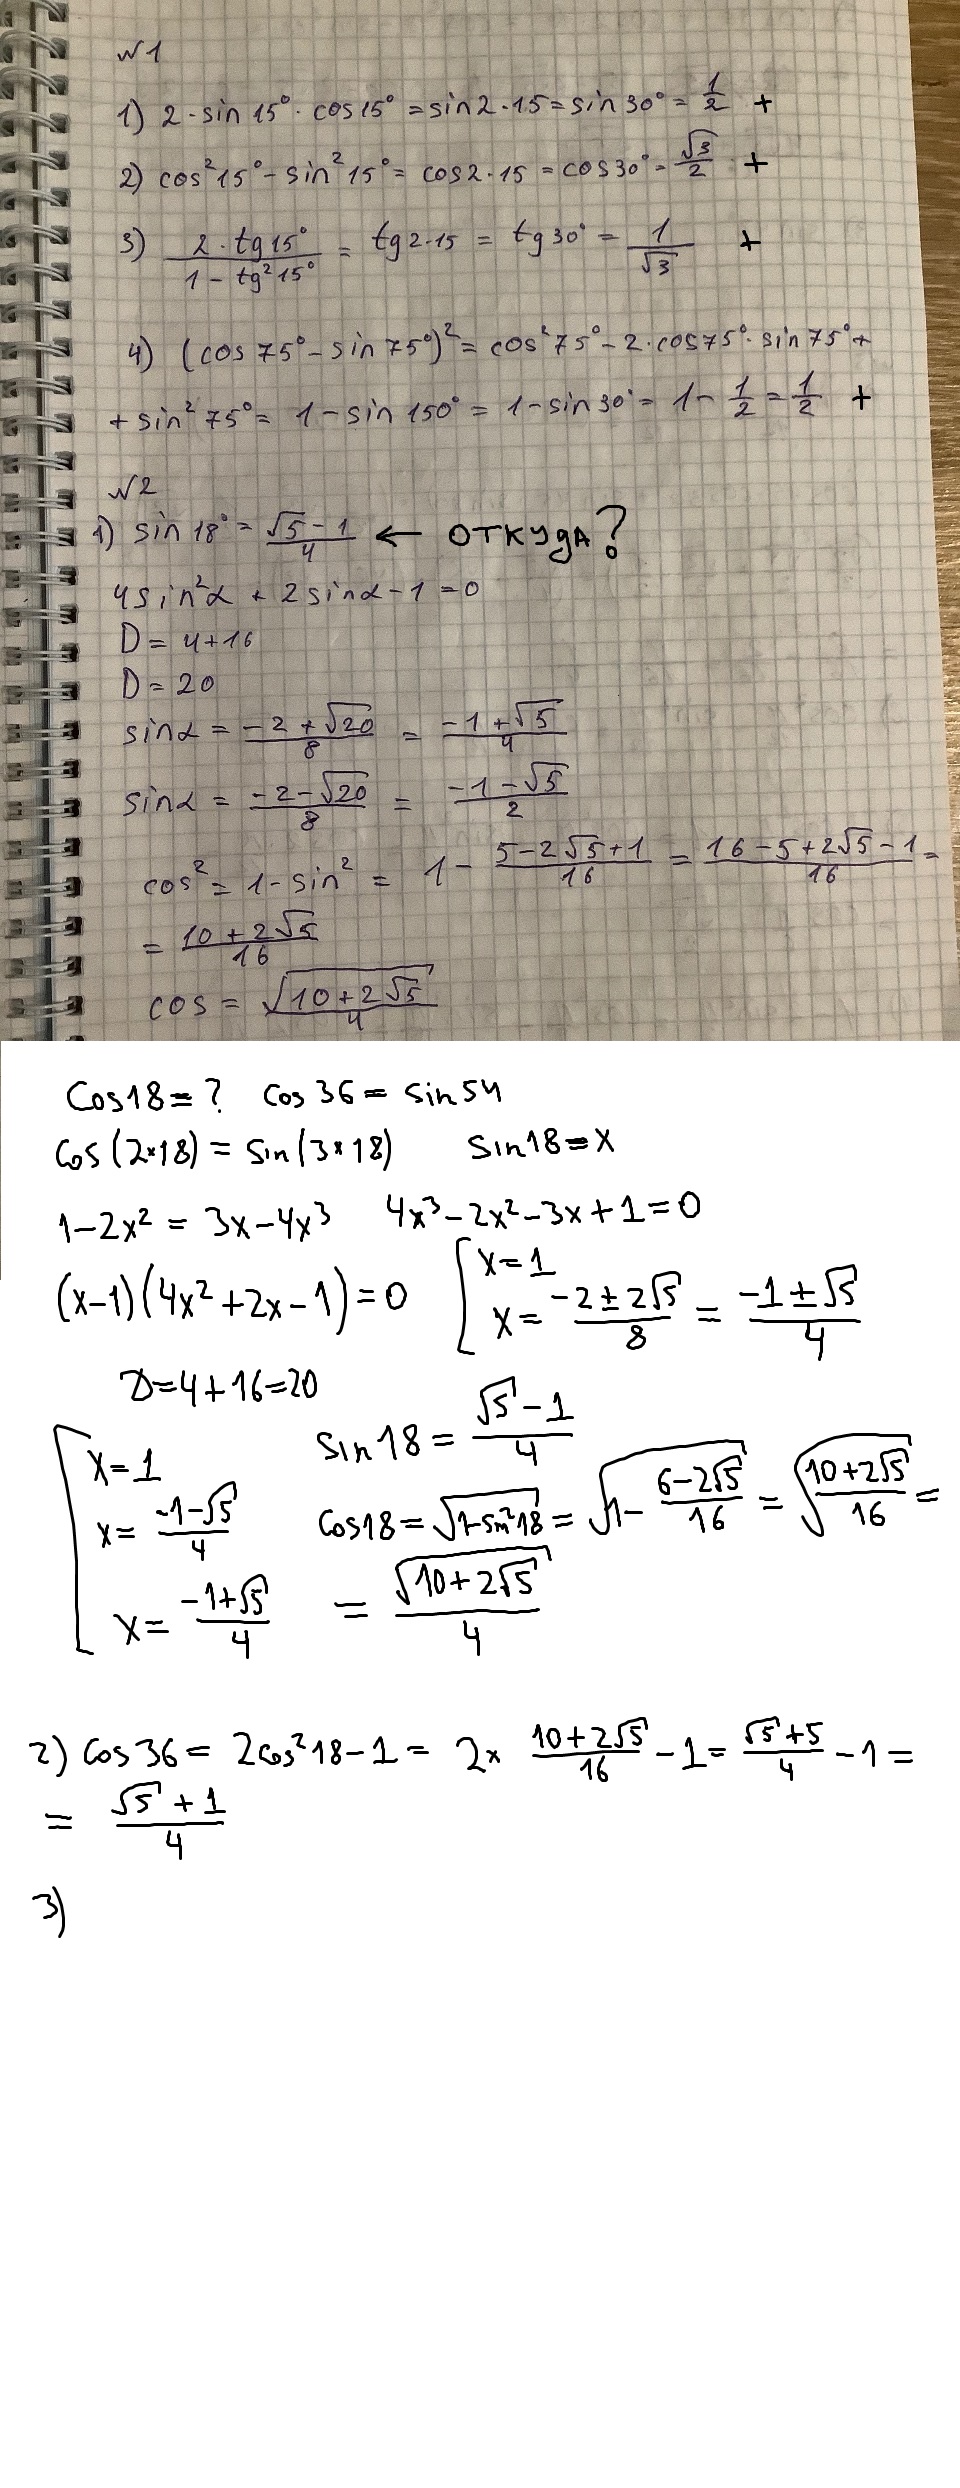 №1
1) 2·sin 15°·cos15° = sin2·15 = sin 30° = 1/2 +
2) cos²15° - sin²15° = cos2·15 = cos30° = √3/2 +
3) 2·tg15°/(1 - tg²15°) = tg2·15 = tg30° = 1/√3 +
4) (cos 75° - sin 75°)² = cos²75° - 2·cos75°·sin 75° +
+ sin²75° = 1 - sin 150° = 1 - sin 30° = 1 - 1/2 = 1/2 +
№2
1) sin 18° = (√5 - 1)/4 ← ОТКУДА?
4sin²α + 2sinα - 1 = 0
D = 4+16
D = 20
sinα = (-2 + √20)/8 = (-1 + √5)/4
sinα = (-2 - √20)/8 = (-1 - √5)/2
cos² = 1 - sin² = 1 - (5 - 2√5 + 1)/16 = (16 - 5 + 2√5 - 1)/16 =
= (10 + 2√5)/16
cos = √(10 + 2√5)/4
Cos18 = ? cos 36 = sin 54
Cos(2*18) = sin(3*18) sin18 = x
1 - 2x² = 3x - 4x³ 4x³ - 2x² - 3x + 1 = 0
(x-1)(4x² + 2x - 1) = 0 [ x = 1
x = (-2 ± 2√5)/8 = (-1 ± √5)/4
D = 4 + 16 = 20
[ x = 1 sin18 = (√5 - 1)/4
x = (-1 - √5)/4 cos18 = √(1 - sin²18) = √(1 - (6 - 2√5)/16) = √((10 + 2√5)/16) =
x = (-1 + √5)/4 = √(10 + 2√5)/4
2) cos36 = 2cos²18 - 1 = 2* (10 + 2√5)/16 - 1 = (√5 + 5)/4 - 1 =
= (√5 + 1)/4
3)